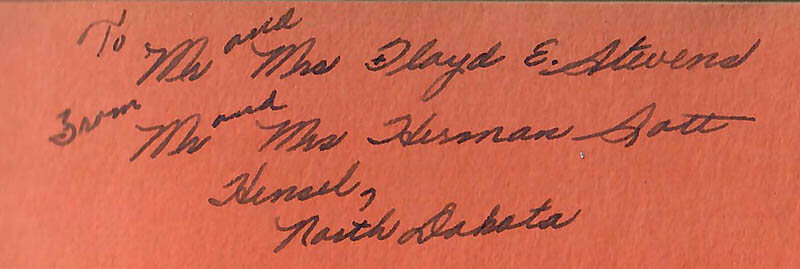 To Mr and Mrs Floyd E. Stevens
From Mr and Mrs Herman Gott
Hensel,
North Dakota